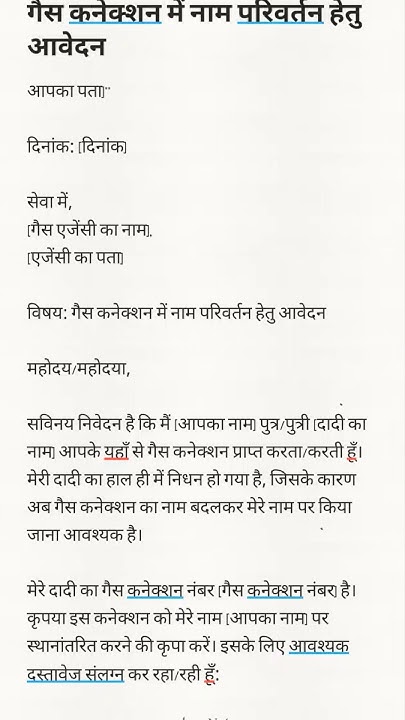 गैस कनेक्शन में नाम परिवर्तन हेतु
आवेदन
आपका पता]"
दिनांक: [दिनांक]
सेवा में,
[गैस एजेंसी का नाम],
[एजेंसी का पता]
विषय: गैस कनेक्शन में नाम परिवर्तन हेतु आवेदन
महोदय/महोदया,
सविनय निवेदन है कि मैं [आपका नाम] पुत्र/पुत्री [दादी का
नाम] आपके यहाँ से गैस कनेक्शन प्राप्त करता/करती हूँ।
मेरी दादी का हाल ही में निधन हो गया है, जिसके कारण
अब गैस कनेक्शन का नाम बदलकर मेरे नाम पर किया
जाना आवश्यक है।
मेरे दादी का गैस कनेक्शन नंबर [गैस कनेक्शन नंबर] है।
कृपया इस कनेक्शन को मेरे नाम [आपका नाम] पर
स्थानांतरित करने की कृपा करें। इसके लिए आवश्यक
दस्तावेज संलग्न कर रहा/रही हूँ: